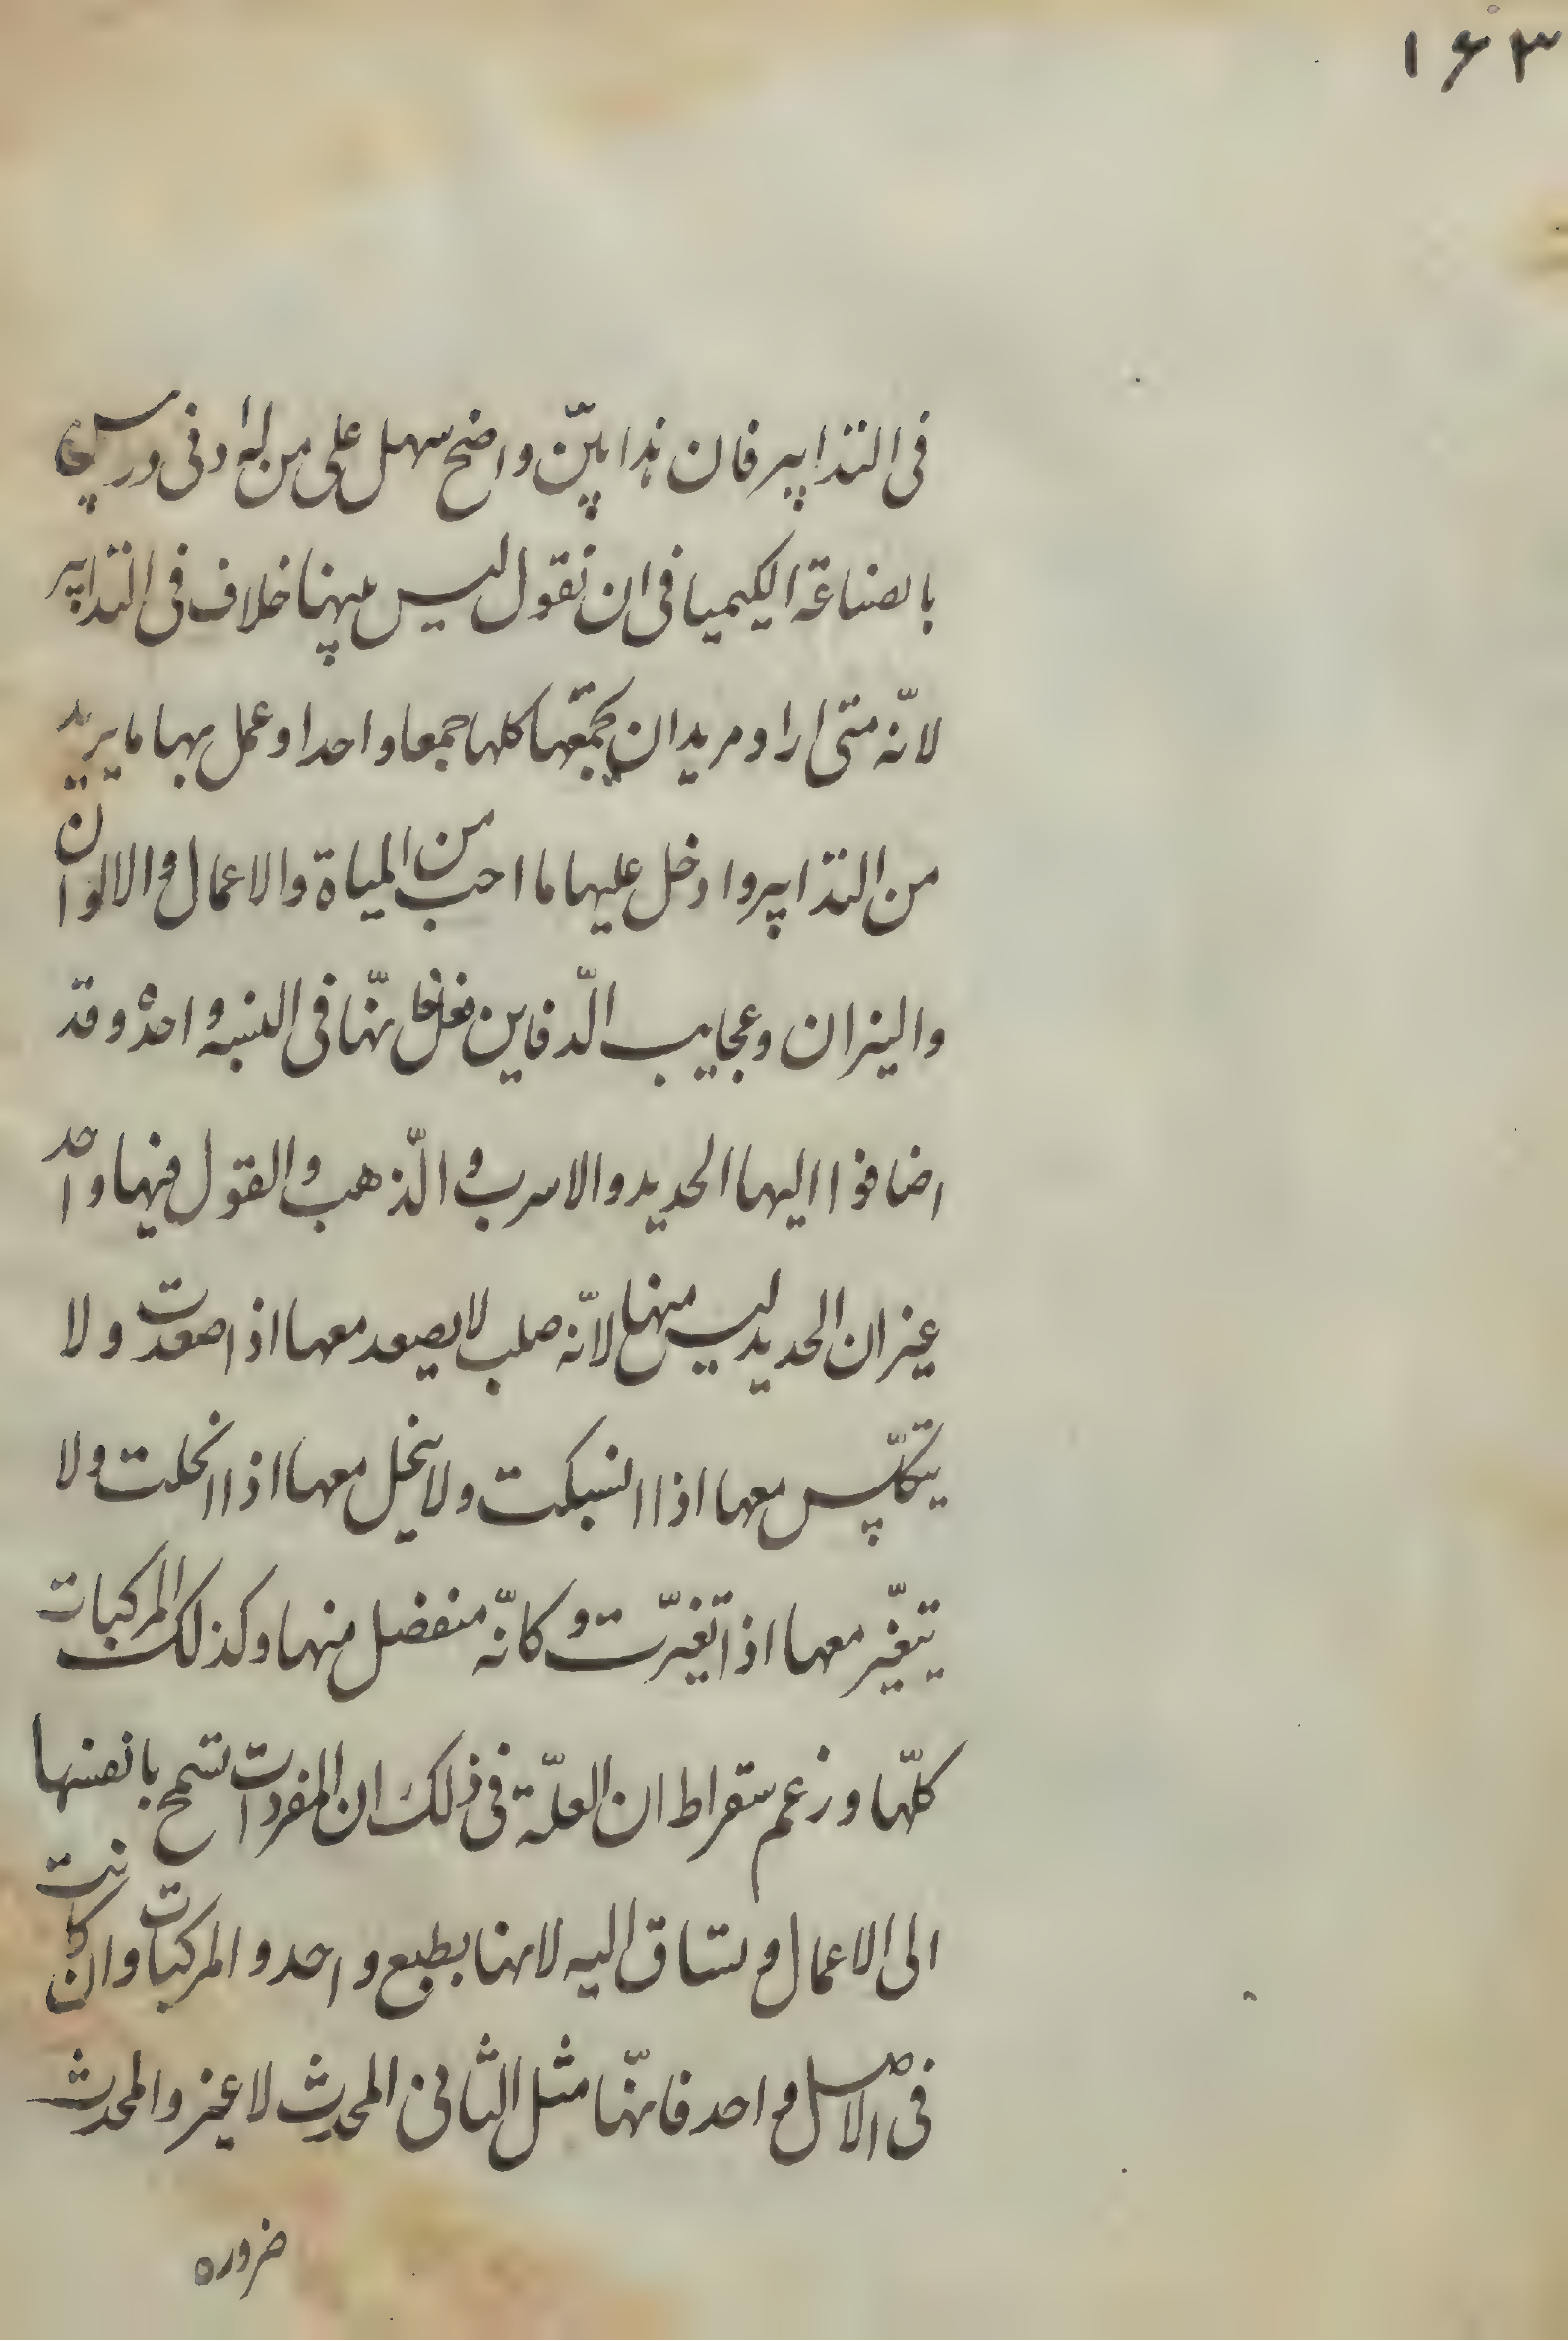 ١۶٣
فى التدابير فان هذا بيّن واضح سهل على من له ادنى
بالصناعة الكيميا فى ان نقول ليس بينها خلاف فى التدابير
لانّه متى اراد مريد ان يجمعها كلها جمعا واحدا وعمل بها ما يريد
من التدابير وادخل عليها ما احب من المياة والاعمال والالوان
والنيران وعجايب الدّفاين فعل فانّها فى النسبه واحدة وقد
اضافوا اليها الحديد والاسرب والذّهب والقول فيها واحد
غير ان الحديد ليس منها لانّه صلب لا يصعد معها اذا صعدت ولا
يتكلّس معها اذا انسبكت ولا ينحل معها اذا انحلت ولا
يتغيّر معها اذا تغيّرت وكانّه منفصل منها وكذلك المركبات
كلّها وزعم سقراط ان العلّة فى ذلك ان المفردات تسمح بانفسها
الى الاعمال وتساق اليه لانها بطبع واحد والمركبات وان كانت
فى الاصل واحد فانّها مثل الثانى المحدث لا غير والمحدث
ضروره